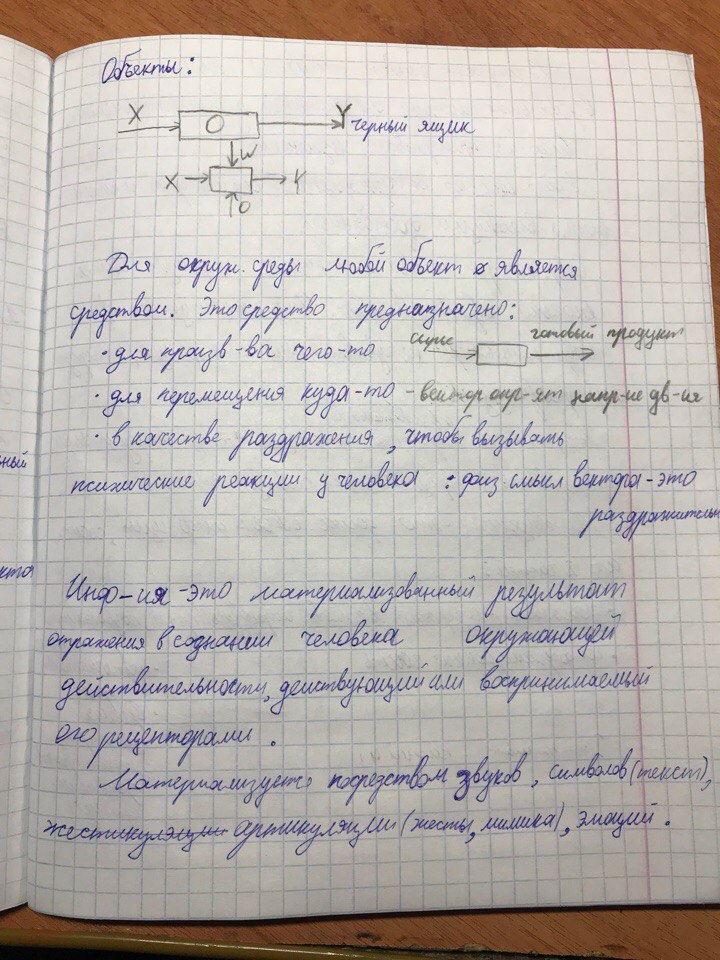 Объекты:
X O Y черный ящик
W
X Y
O
Для окруж. среды любой объект является
средством. Это средство предназначено:
· для произв-ва чего-то сырье готовый продукт
· для перемещения куда-то - вектор опр-ят напр-ие дв-ия
· в качестве раздражения, чтобы вызывать
психические реакции у человека : физ смысл вектора - это
раздражитель
ный
кта
Инф-ия - это материализованный результат
отражения в соднании человека окружающей
действительности, действующий или воспринимаемый
его рецепторами.
Материализуется посредством звуков, символов (текст),
жестикуляции артикуляции (жесты, мимика), эмоций.